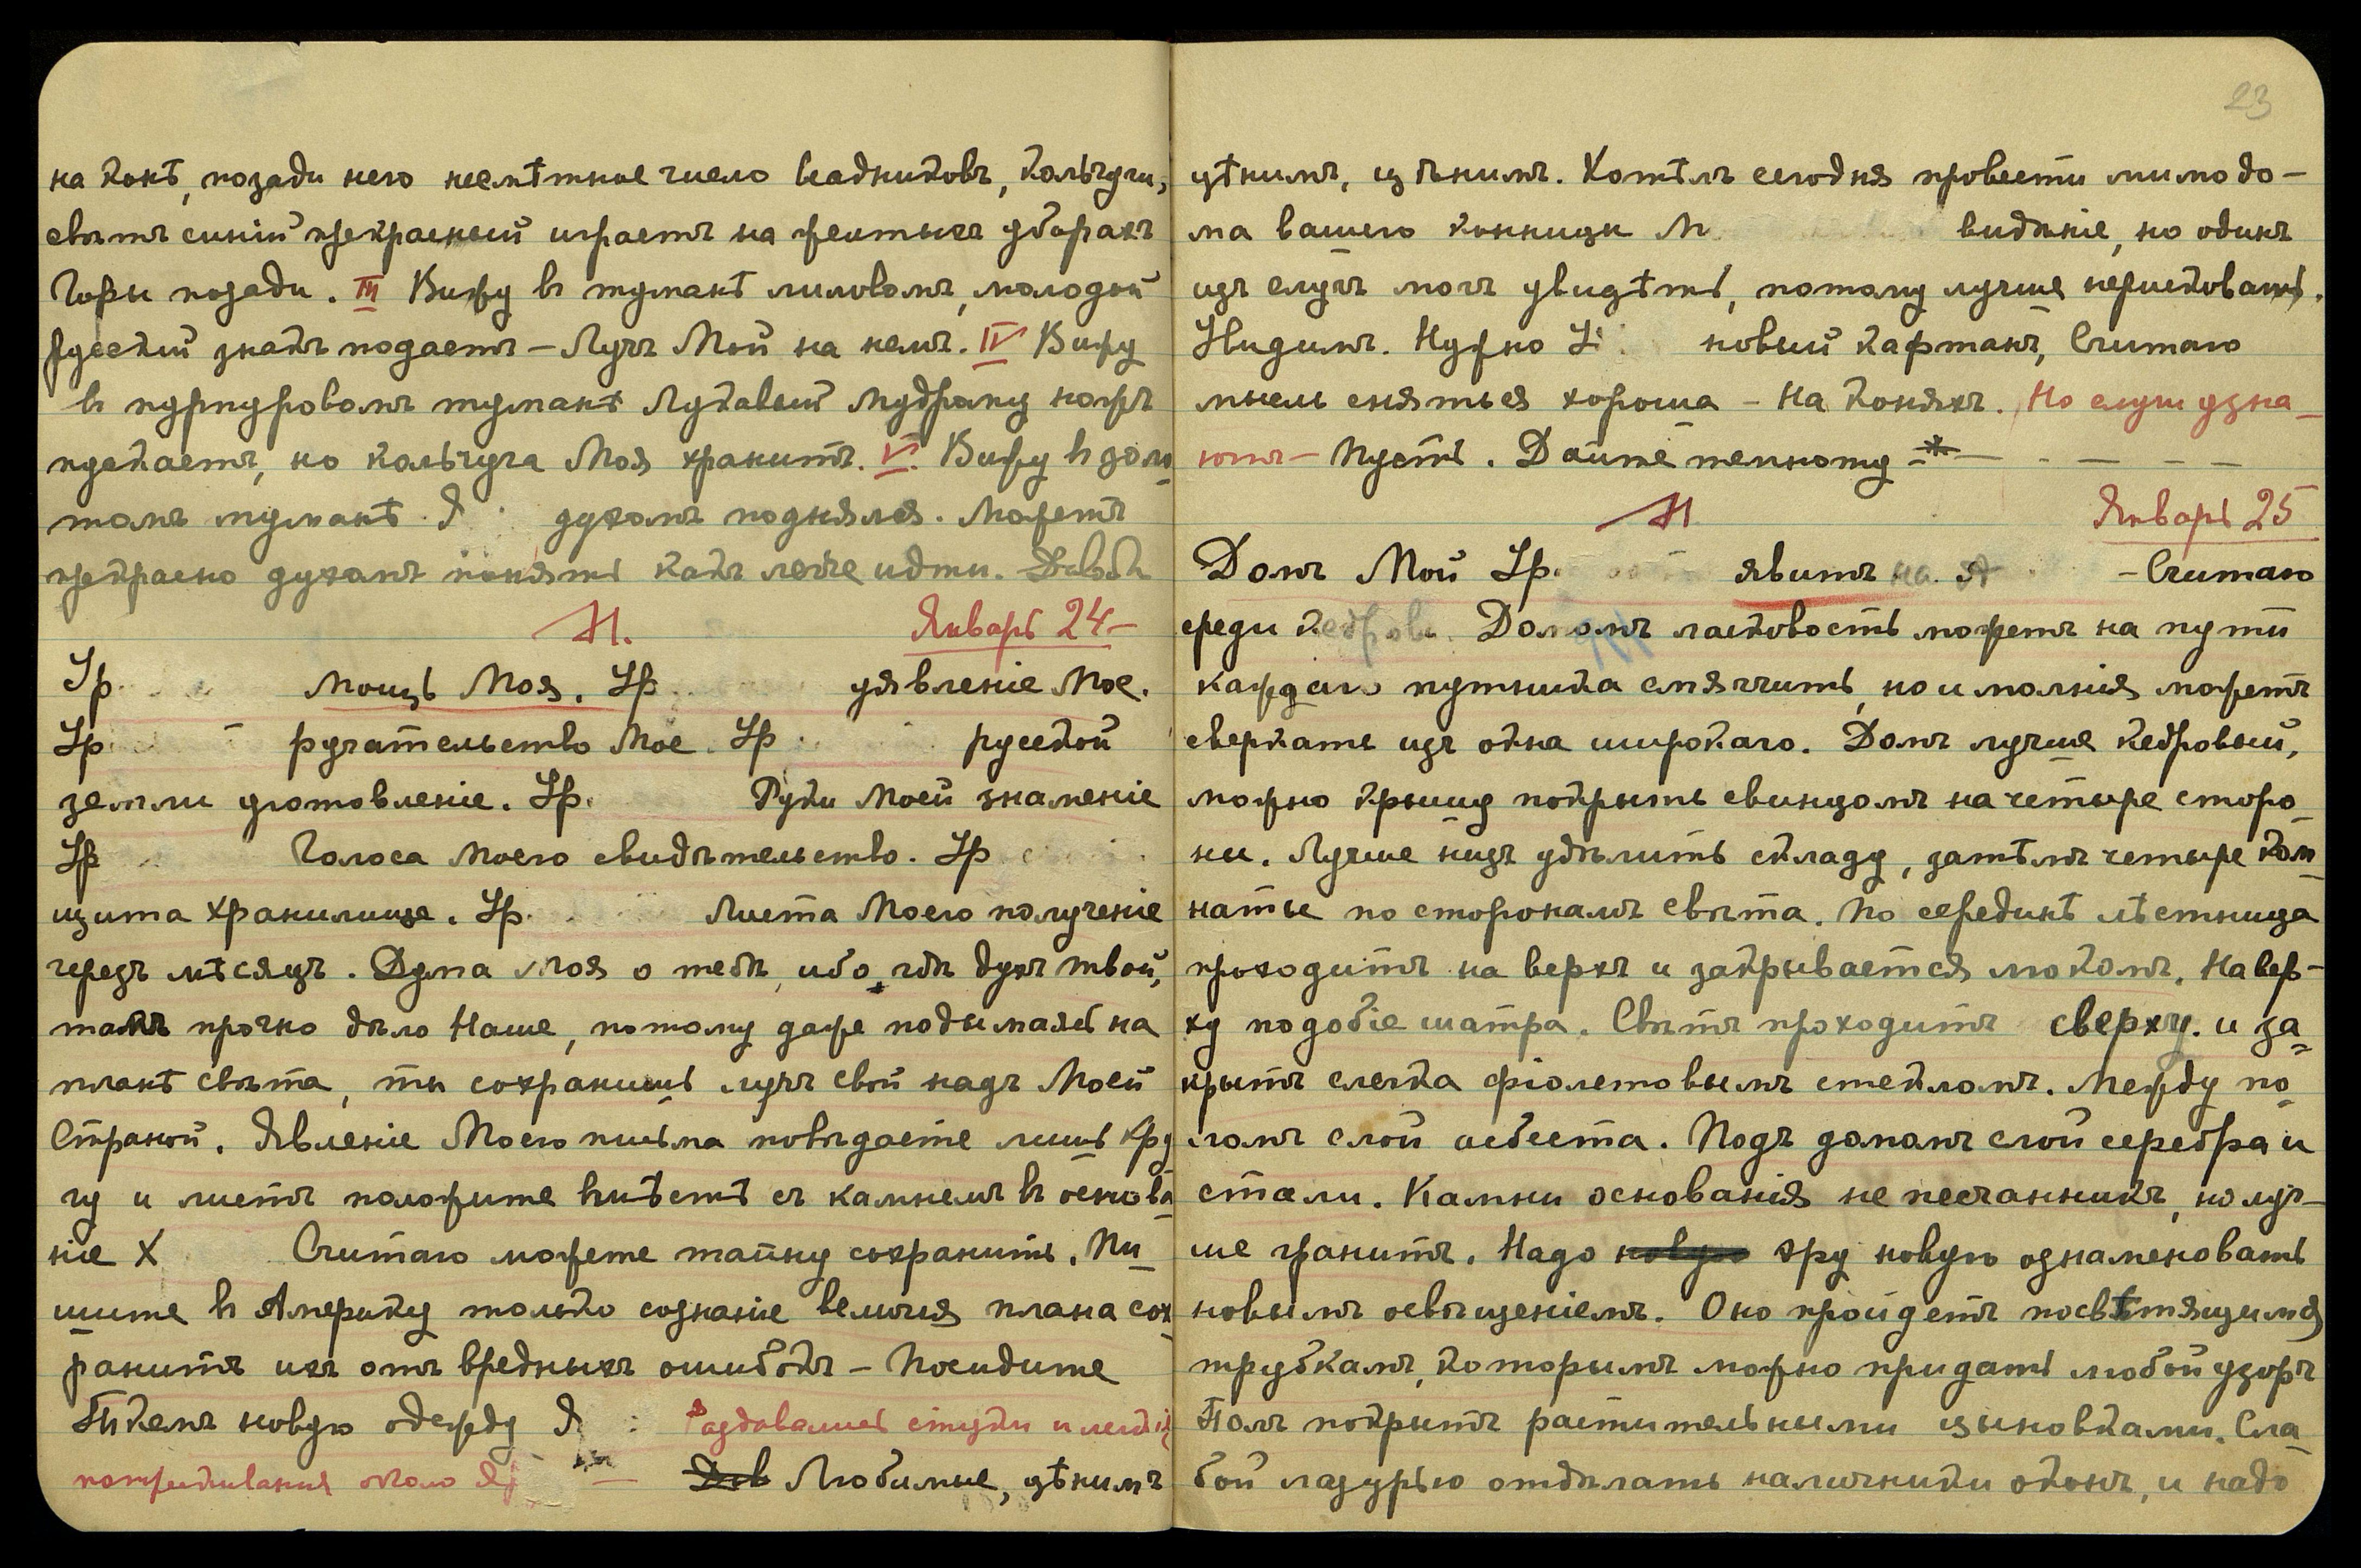 на конѣ, позади него несмѣтное число всадниковъ, кольчуги,
свѣтъ синій прекрасный играетъ на желтыхъ уборахъ
Горы позади. III Вижу въ туманѣ лиловомъ, молодой
русский знакъ подаетъ – Лучъ Мой на немъ. IV Вижу
въ пурпуровомъ туманѣ Лукавый мудрому ножъ
пускаетъ, но кольчуга Моя хранитъ. V. Вижу въ золо
томъ туманѣ Я духомъ поднялся. Можетъ
прекрасно духомъ понять какъ легче идти.
Январь 24–
Ур. мощь Моя. Ур. уявленіе Мое.
Ур. ручательство Мое. Ур. русской
земли уготовленіе. Ур. Руки Моей знаменіе
Ур Голоса Моего свидѣтельство. Ур
щита хранилище. Ур. Листа Моего полученіе
черезъ мѣсяцъ. Дума Моя о тебѣ, ибо, гдѣ духъ твой,
тамъ прочно дѣло Наше, потому даже подымаясь на
планѣ свѣта, ты сохранишь лучъ свой надъ Моей
Страной. Явленіе Моего письма повѣдаете лишь кру
гу и листъ положите вмѣстѣ съ камнемъ въ основа
ніе Х Считаю можете тайну сохранить. Пи–
шите въ Америку только сознаніе величія плана сох
ранитъ ихъ отъ вредныхъ ошибокъ – Посидите
Ткемъ новую одежду Я Раздавались стуки и
потрескивания около Я – Любимые, цѣнимъ
23
цѣнимъ, цѣнимъ. Хотѣлъ сегодня провести мимо до–
ма вашего конницы М видѣніе, но одинъ
изъ слугъ могъ увидѣть, потому лучше не рисковать.
Увидимъ. Нужно У новый кафтанъ, Считаю
мысль сняться хороша – На коняхъ. Но слуги узна–
ютъ – Пусть. Дайте темноту –*– – – – –
Январь 25
Домъ Мой Ур. явитъ на А – Считаю
среди кедровъ. Домомъ ласковость можетъ на пути
каждаго путника смягчить, но и молнія можетъ
сверкать изъ окна широкаго. Домъ лучше кедровый,
можно крышу покрыть свинцомъ на четыре сторо
ны. Лучше низъ удѣлить складу, затѣмъ четыре ком
наты по сторонамъ свѣта. По серединѣ лѣстница
проходитъ на верхъ и закрывается люкомъ. На вер–
ху подобіе шатра. Свѣтъ проходитъ сверху. и за
крытъ слегка фіолетовымъ стекломъ. Между по
ломъ слой асбеста. Подъ домомъ слой серебра и
стали. Камни основанія не песчанникъ, но луч–
ше гранитъ. Надо новую эру новую ознаменовать
новымъ освѣщеніемъ. Оно пройдетъ по свѣтящимся
трубкамъ, которымъ можно придать любой узоръ
Полъ покрытъ растительными цыновками. Сла
бой лазурью отдѣлать наличники оконъ, и надо